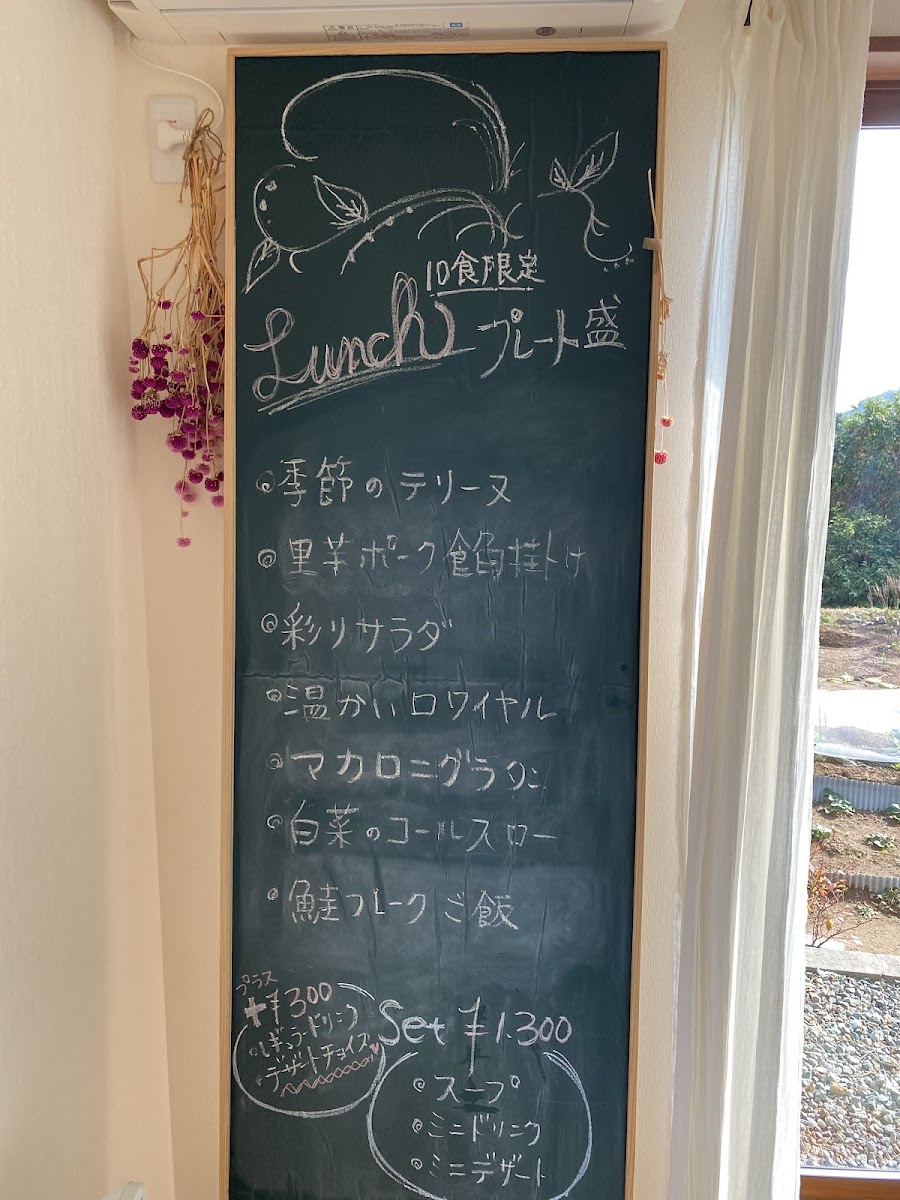 10食限定
Lunch プレート盛
季節のテリーヌ
里芋ポーク餡掛け
彩りサラダ
温かいロワイヤル
マカロニグラタン
白菜のコールスロー
鮭フレークご飯
プラス
+¥300
レギュラードリンク
デザートチョイス
Set ¥1.300
スープ
ミニドリンク
ミニデザート